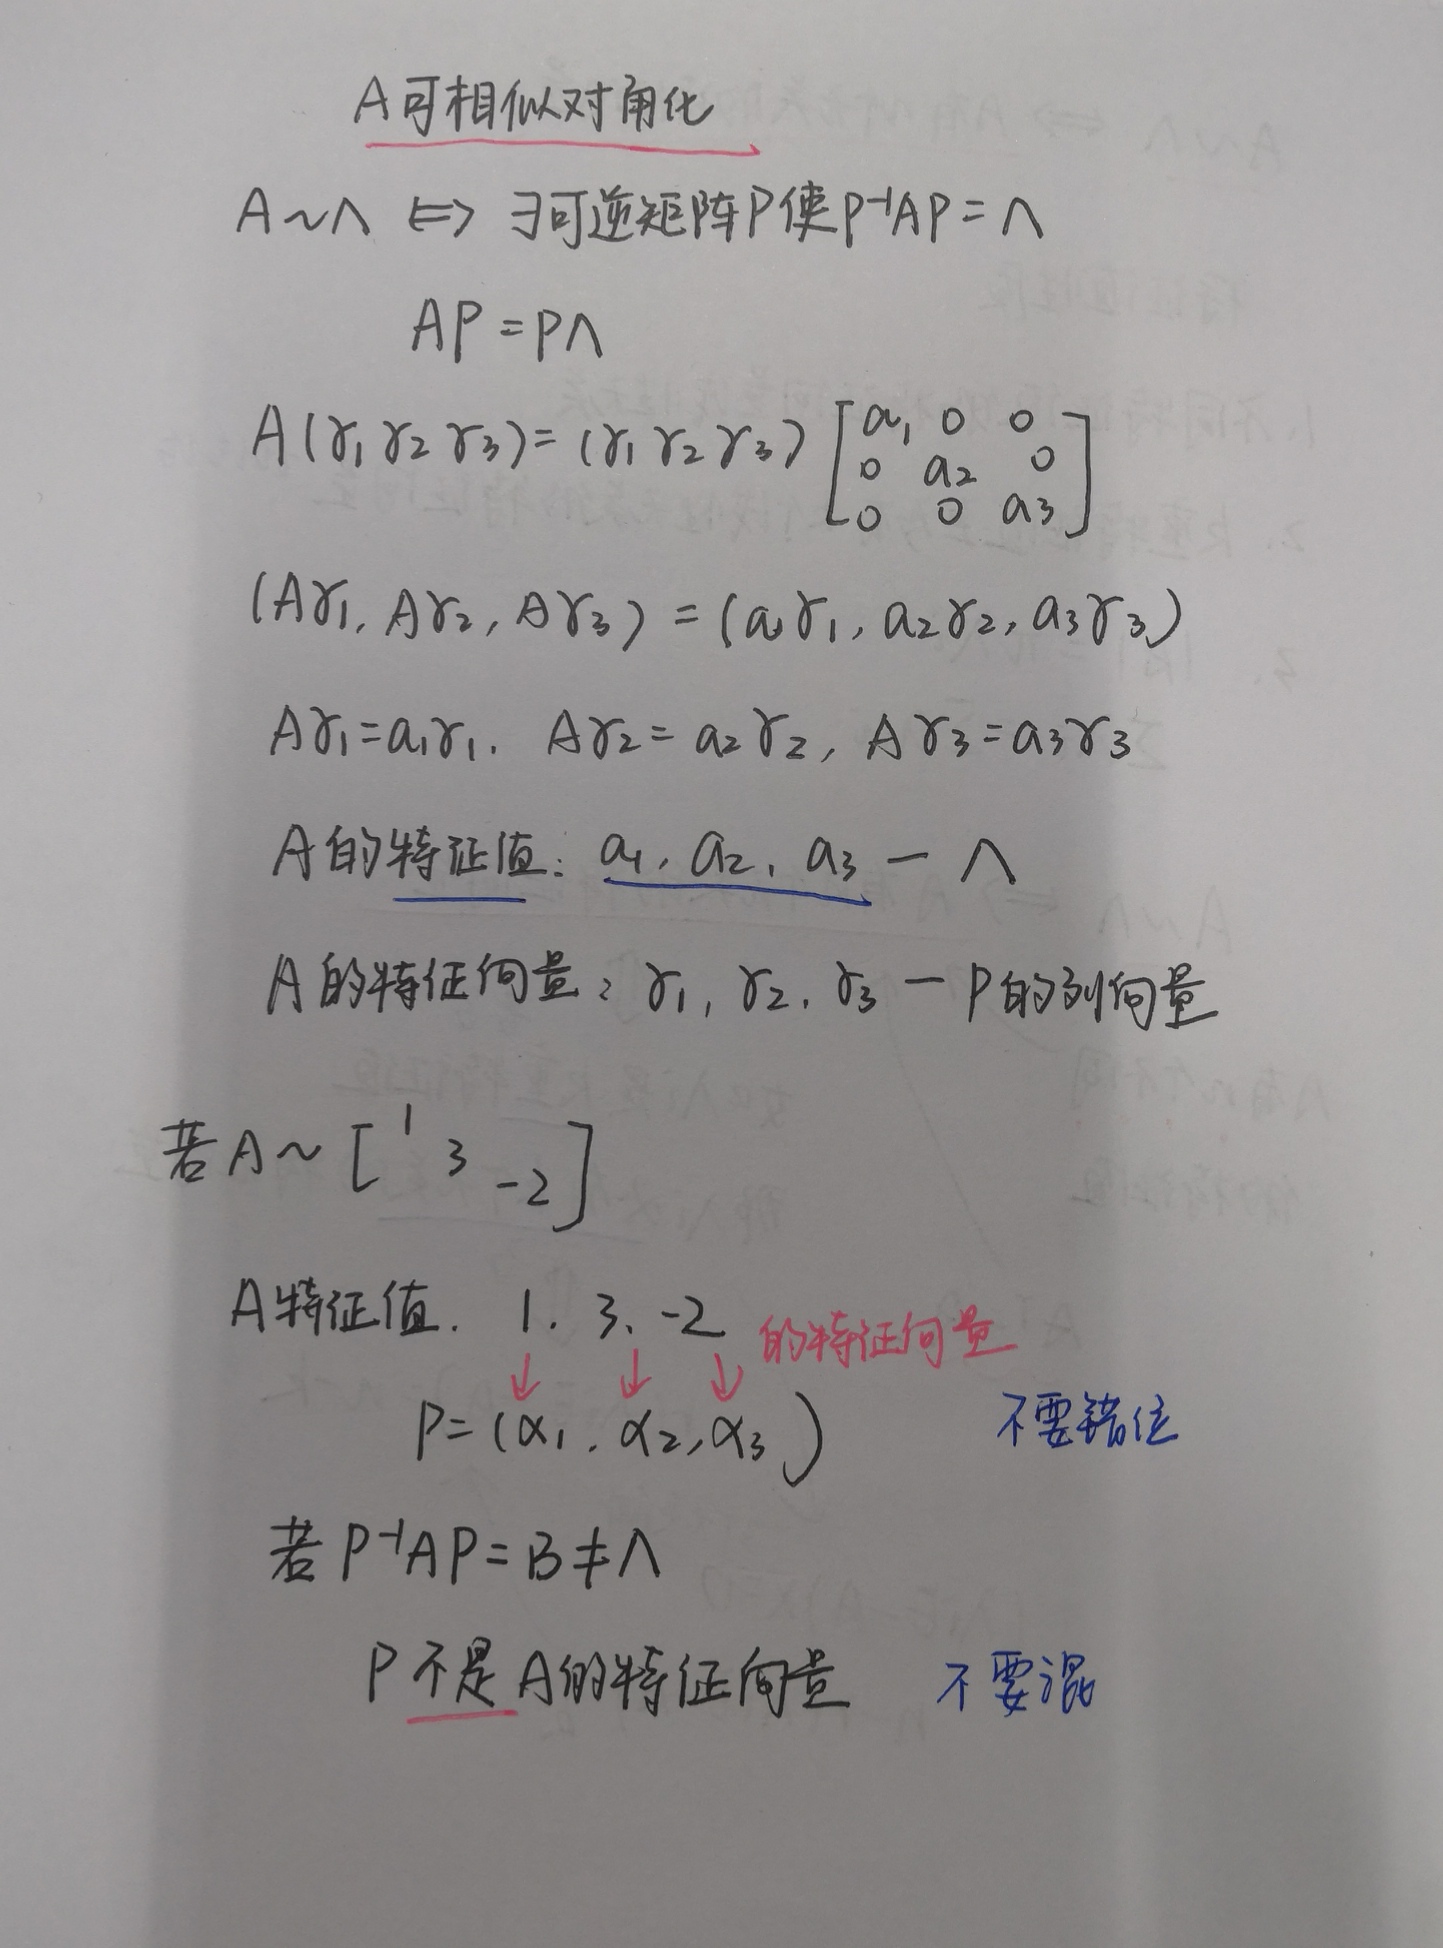 A可相似对角化
A~Λ ⇔ ∃可逆矩阵P使P⁻¹AP=Λ
AP=PΛ
A(γ₁ γ₂ γ₃)=(γ₁ γ₂ γ₃) [a₁ 0 0
0 a₂ 0
0 0 a₃]
(Aγ₁, Aγ₂, Aγ₃)=(a₁γ₁, a₂γ₂, a₃γ₃)
Aγ₁=a₁γ₁. Aγ₂=a₂γ₂, Aγ₃=a₃γ₃
A的特征值: a₁, a₂, a₃ — Λ
A的特征向量: γ₁, γ₂, γ₃ — P的列向量
若A~[1 3 -2]
A特征值. 1. 3. -2 的特征向量
↓ ↓ ↓
P=(α₁, α₂, α₃) 不要错位
若P⁻¹AP=B≠Λ
P不是A的特征向量 不要混